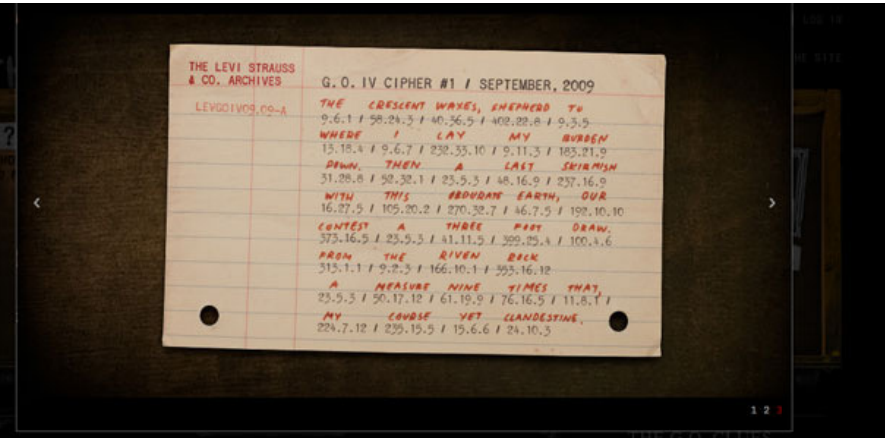 THE LEVI STRAUSS
& CO. ARCHIVES
LEVGOIV09.09-A
G.O. IV CIPHER #1 / SEPTEMBER, 2009
THE CRESCENT WAXES, SHEPHERD TO
9.6.1 / 58.24.3 / 40.36.5 / 402.22.8 / 9.3.5
WHERE I LAY MY BURDEN
13.18.4 / 9.6.7 / 232.33.10 / 9.11.3 / 183.21.9
DOWN. THEN A LAST SKIRMISH
31.28.8 / 52.32.1 / 23.5.3 / 48.16.9 / 237.16.9
WITH THIS OBDURATE EARTH, OUR
16.27.5 / 105.20.2 / 270.32.7 / 46.7.5 / 192.10.10
CONTEST A THREE FOOT DRAW.
373.16.5 / 23.5.3 / 41.11.5 / 399.25.4 / 100.4.6
FROM THE RIVEN ROCK
313.1.1 / 9.2.3 / 166.10.1 / 353.16.12
A MEASURE NINE TIMES THAT,
23.5.3 / 50.17.12 / 61.19.9 / 76.16.5 / 11.8.1 /
MY COURSE YET CLANDESTINE.
224.7.12 / 235.15.5 / 15.6.6 / 24.10.3
1 2 3